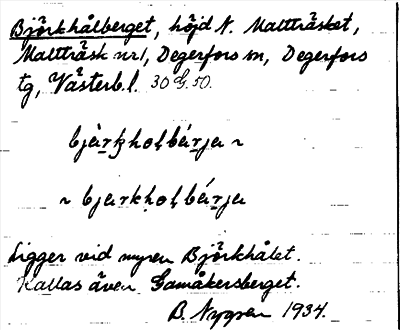 Björkhålberget, höjd N. Maltträsket,
Maltträsk nr 1, Degerfors sn, Degerfors
tg, Västerb. l. 30 G. 50.
bjàrkhoḷbä́rja ~
~ bjarkhoḷbä́rja
Ligger vid myren Björkhålet.
Kallas även Gamåkersberget.
B. Nygren 1934.